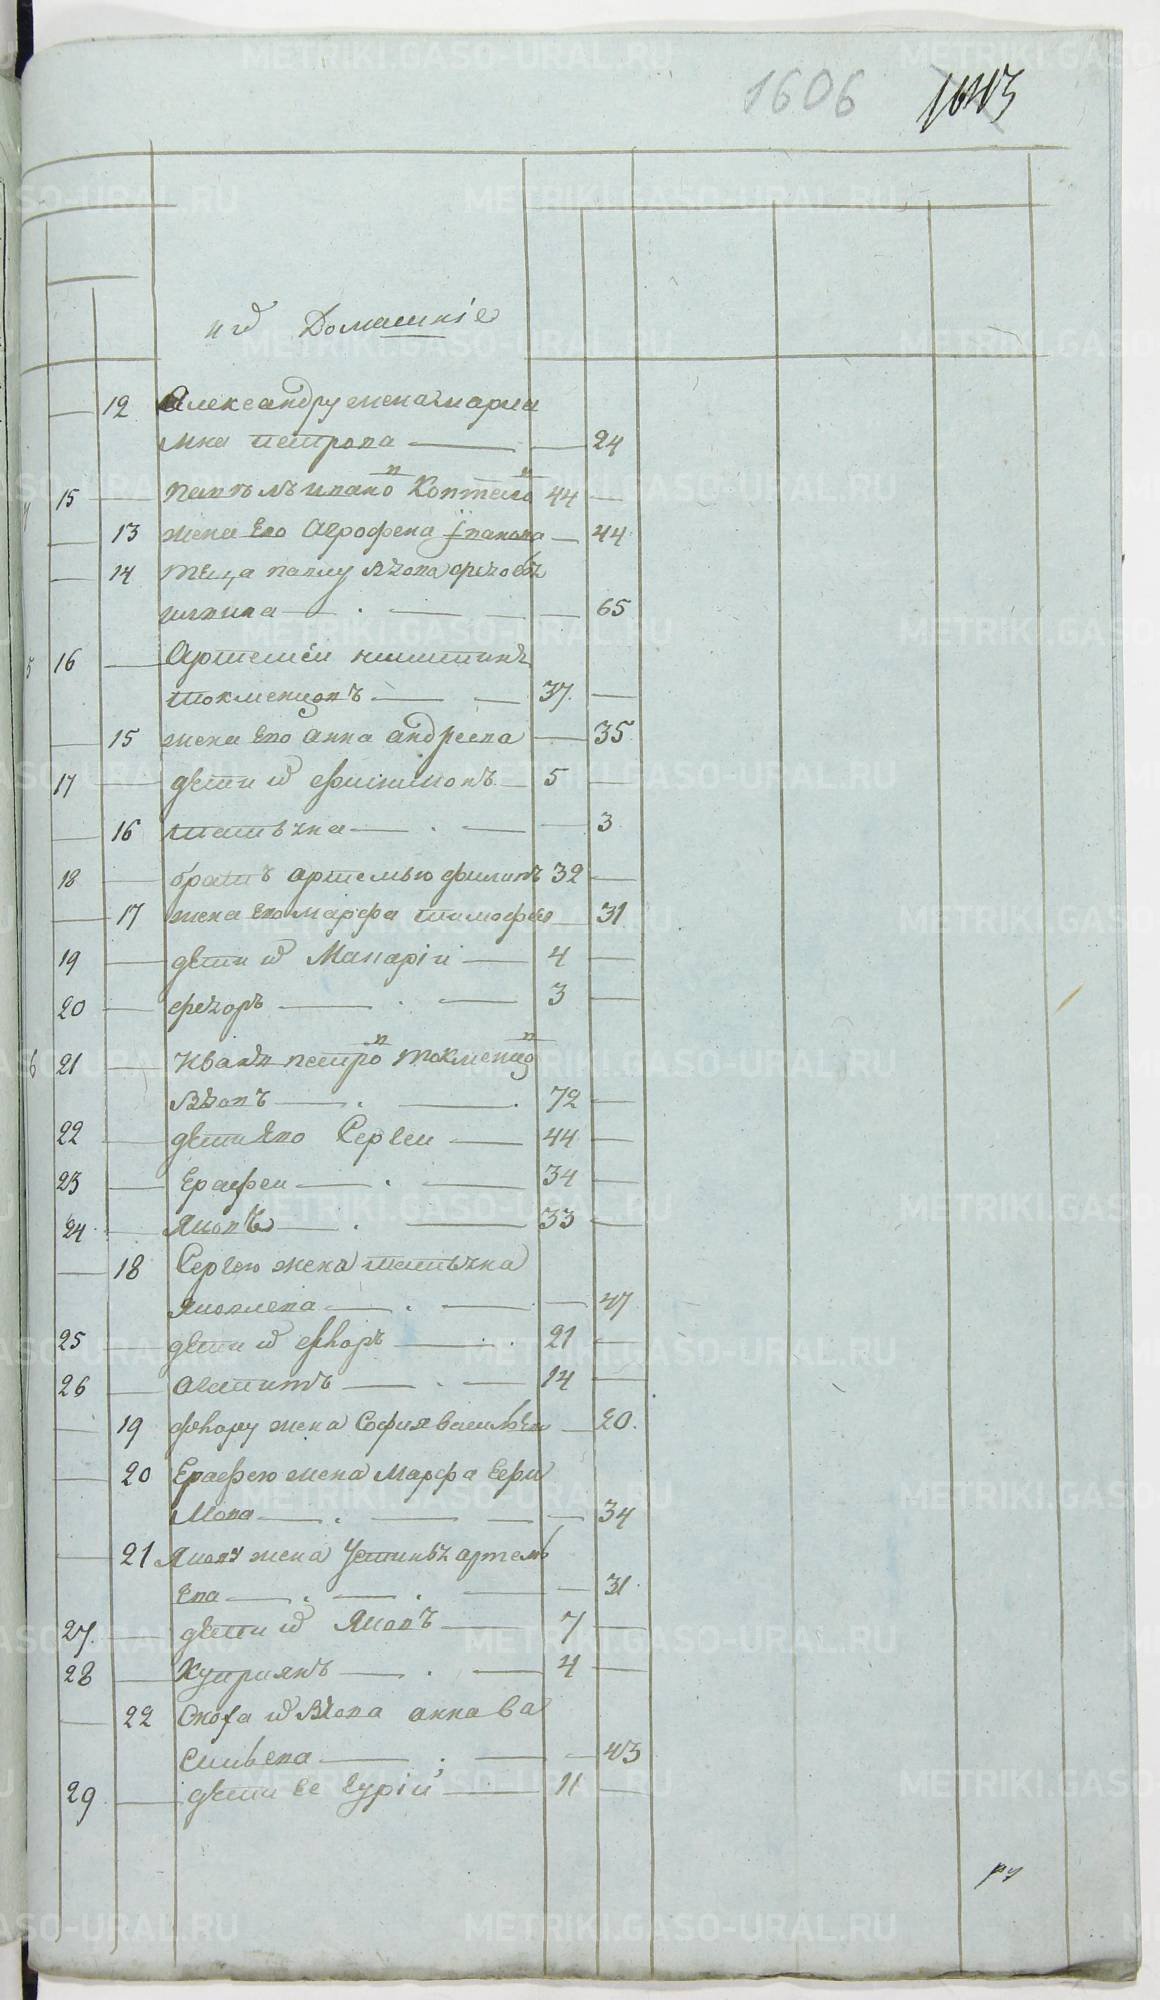 1606 1643
и ѿ Домашніе
12 Александру жена марья
мна петрова 24
15 павелъ ивано в Коптело в 44
13 жена Его Агрофена Iванова 44
14 теща павлу вдова
65
5 16 Артемей никитинъ
токменцовъ 37
15 жена Его анна андреева 35
17 дети ѿ филимонъ 5
16 татьяна 3
18 братъ артемью филипъ 32
17 жена Его марфа тимофее 31
19 дети ѿ Макарій 4
20 федоръ 3
6 21 Иванъ петро в токменцо в
вдовъ 72
22 дети Его Сергеи 44
23 Ерафеи 34
24 яковъ 33
18 Сергею жена татьяна
яковлева 47
25 дети ѿ егоръ 21
26 осипъ 14
19 егору жена София василье 20
20 Ерафею жена Марфа Ефи
мова 34
21 якову жена Устинья артемь
Ева 31
27 дети ѿ яковъ 7
28 Куприянъ 4
22 вдова анна ва
сильева 43
29 дети Ее гурій 11